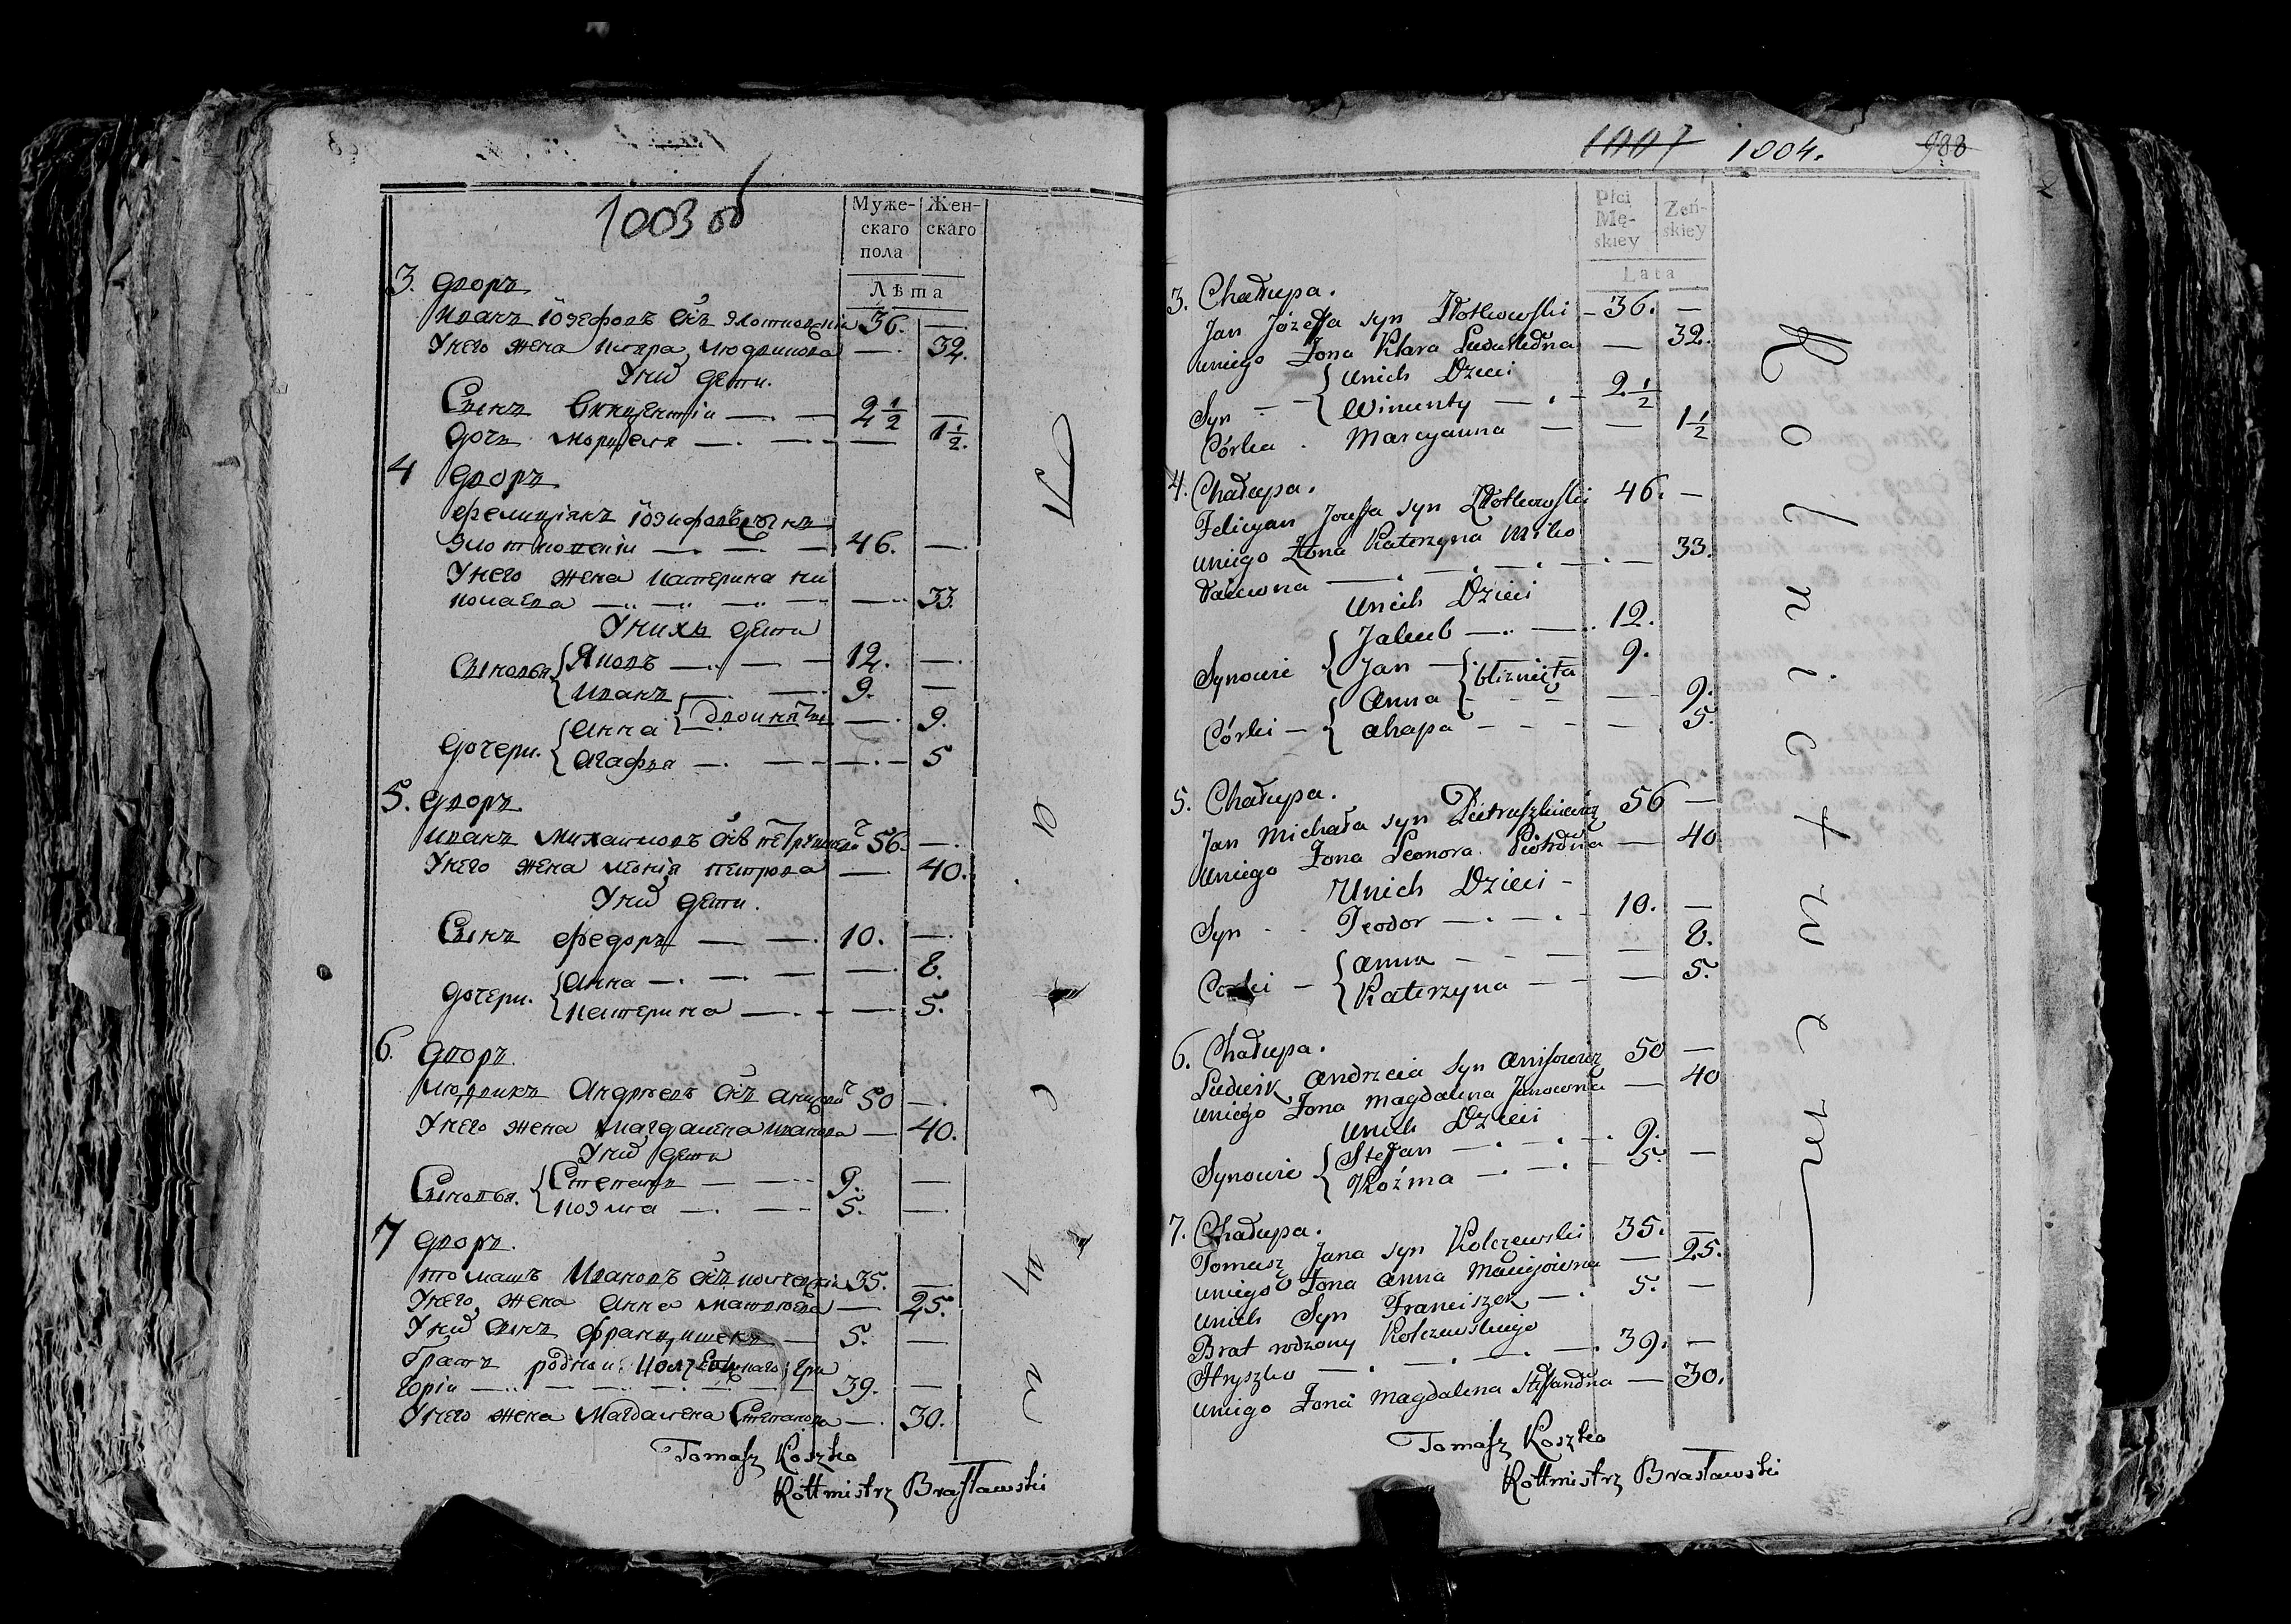 1003 об
Муже-
скаго
пола
Жен-
скаго
Лѣта
3. Дворъ
Иванъ Іозефовъ снъ Злотковскіи 36. —
У него жена Клара Людвикова — 32.
У них дети.
Сынъ Викцентіи — 2 1/2 —
Дочь Марцеля — 1 1/2.
4 Дворъ
Фелициянъ Іозифовъ сынъ
Злотковскіи — 46. —
У него жена Катерина Ни
колаева — 33.
У нихъ дети
Сыновья { Яковъ — 12. —
Иванъ — 9. —
Дочери. { Анна { двоината — 9.
Агафья — 5
5. Дворъ
Иванъ Михайловъ снъ 56. —
У него жена Петрова — 40.
У них дети.
Сынъ Федоръ — 10. —
Дочери. { Анна — 8.
Катерина — 5.
6. Дворъ
Людвикъ Андреевъ снъ 50 —
У него жена Магдалена Иванова — 40.
У них дети
Сыновья. { Степанъ — 9. —
Козма — 5. —
7 Дворъ.
Томашъ Ивановъ снъ Колчевскіи 35. —
У него жена Анна Матвеева — 25.
У них сынъ Францишекъ — 5. —
Братъ роднои Колчевскаго Гри
горіи — 39. —
У него жена Магдалена Степанова — 30.
Tomasz Koszko
Rottmistrz Brasławski
1007 1004. 988
Płci
Mę-
skiey
Żeń-
skiey
Lata
3. Chałupa.
Jan Józefa syn Złotkowski — 36. —
uniego Żona Klara Ludwikówna — 32.
unich Dzieci
Syn - - { Wincenty — 2 1/2
Córka . Marcyanna — 1 1/2
4. Chałupa.
Felicyan Jozefa syn Złotkowski 46. —
uniego Żona Katerzyna Miko
łaiewna — 33.
unich Dzieci
Synowie { Jakub — 12.
Jan — { bliznięta 9.
Córki — { Anna - - - — 9.
Ahapa - - - — 5.
5. Chałupa.
Jan Michała syn Pietraszkiewicz 56 —
uniego Żona Leonora Piotrówna — 40
Unich Dzieci -
Syn - - Teodor — 10. —
Corki — { Anna — 8.
Katerzyna — 5.
6. Chałupa.
Ludwik Andrzeia syn Anisowicz 50 —
uniego Żona Magdalena Janowna — 40
unich Dzieci
Synowie { Stefan — 9. —
Koźma — 5.
7. Chałupa.
Tomasz Jana syn Kolczewski 35. —
uniego Żona Anna Maciejówna — 25.
unich Syn Franciszek — 5. —
Brat rodzony Kolczewskiego
Hryszko — 39. —
uniego Żona Magdalena Stefanówna — 30.
Tomasz Koszko
Rottmistrz Brasławski